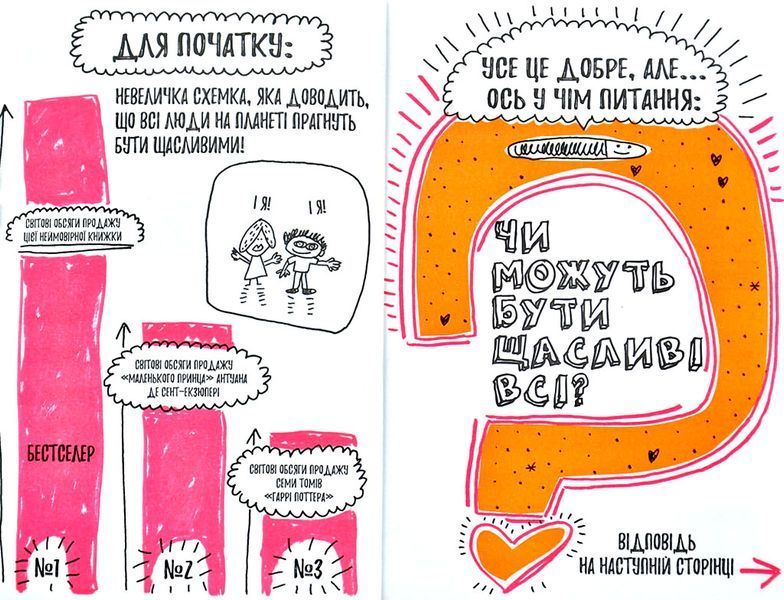 ДЛЯ ПОЧАТКУ:
НЕВЕЛИЧКА СХЕМКА, ЯКА ДОВОДИТЬ,
ЩО ВСІ ЛЮДИ НА ПЛАНЕТІ ПРАГНУТЬ
БУТИ ЩАСЛИВИМИ!
І Я!
І Я!
СВІТОВІ ОБСЯГИ ПРОДАЖУ
ЦІЄЇ НЕЙМОВІРНОЇ КНИЖКИ
СВІТОВІ ОБСЯГИ ПРОДАЖУ
«МАЛЕНЬКОГО ПРИНЦА» АНТУАНА
ДЕ СЕНТ-ЕКЗЮПЕРІ
БЕСТСЕЛЕР
СВІТОВІ ОБСЯГИ ПРОДАЖУ
СЕМИ ТОМІВ
«ГАРРІ ПОТТЕРА»
№1
№2
№3
УСЕ ЦЕ ДОБРЕ, АЛЕ...
ОСЬ У ЧІМ ПИТАННЯ:
ЧИ
МОЖУТЬ
БУТИ
ЩАСЛИВІ
ВСІ?
ВІДПОВІДЬ
НА НАСТУПНІЙ СТОРІНЦІ